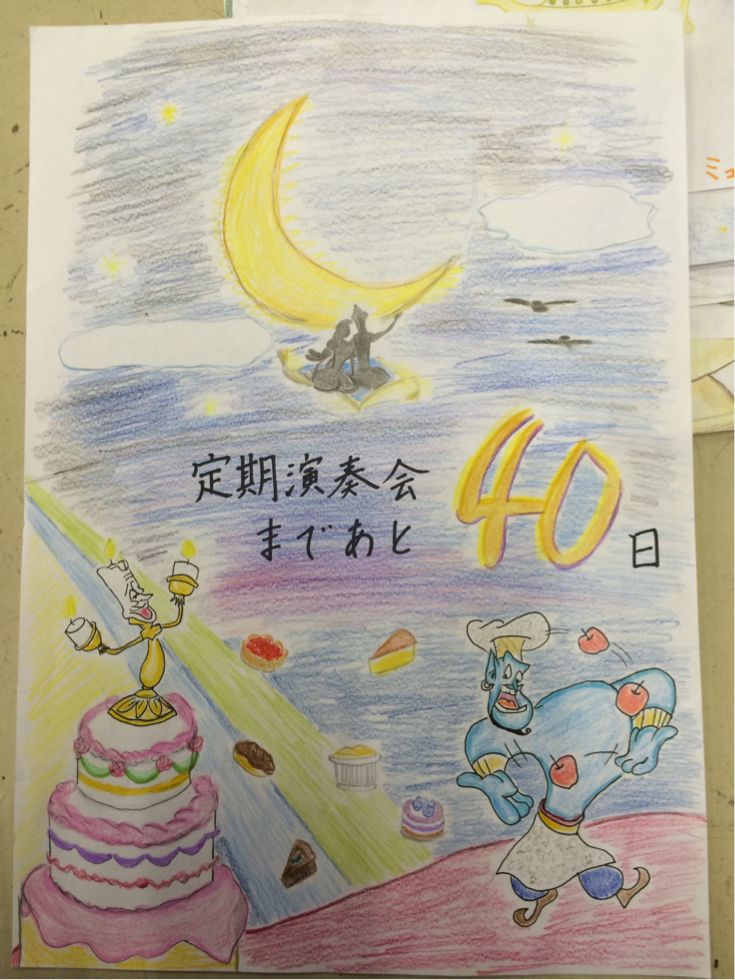 定期演奏会
まであと
40日
ミュ